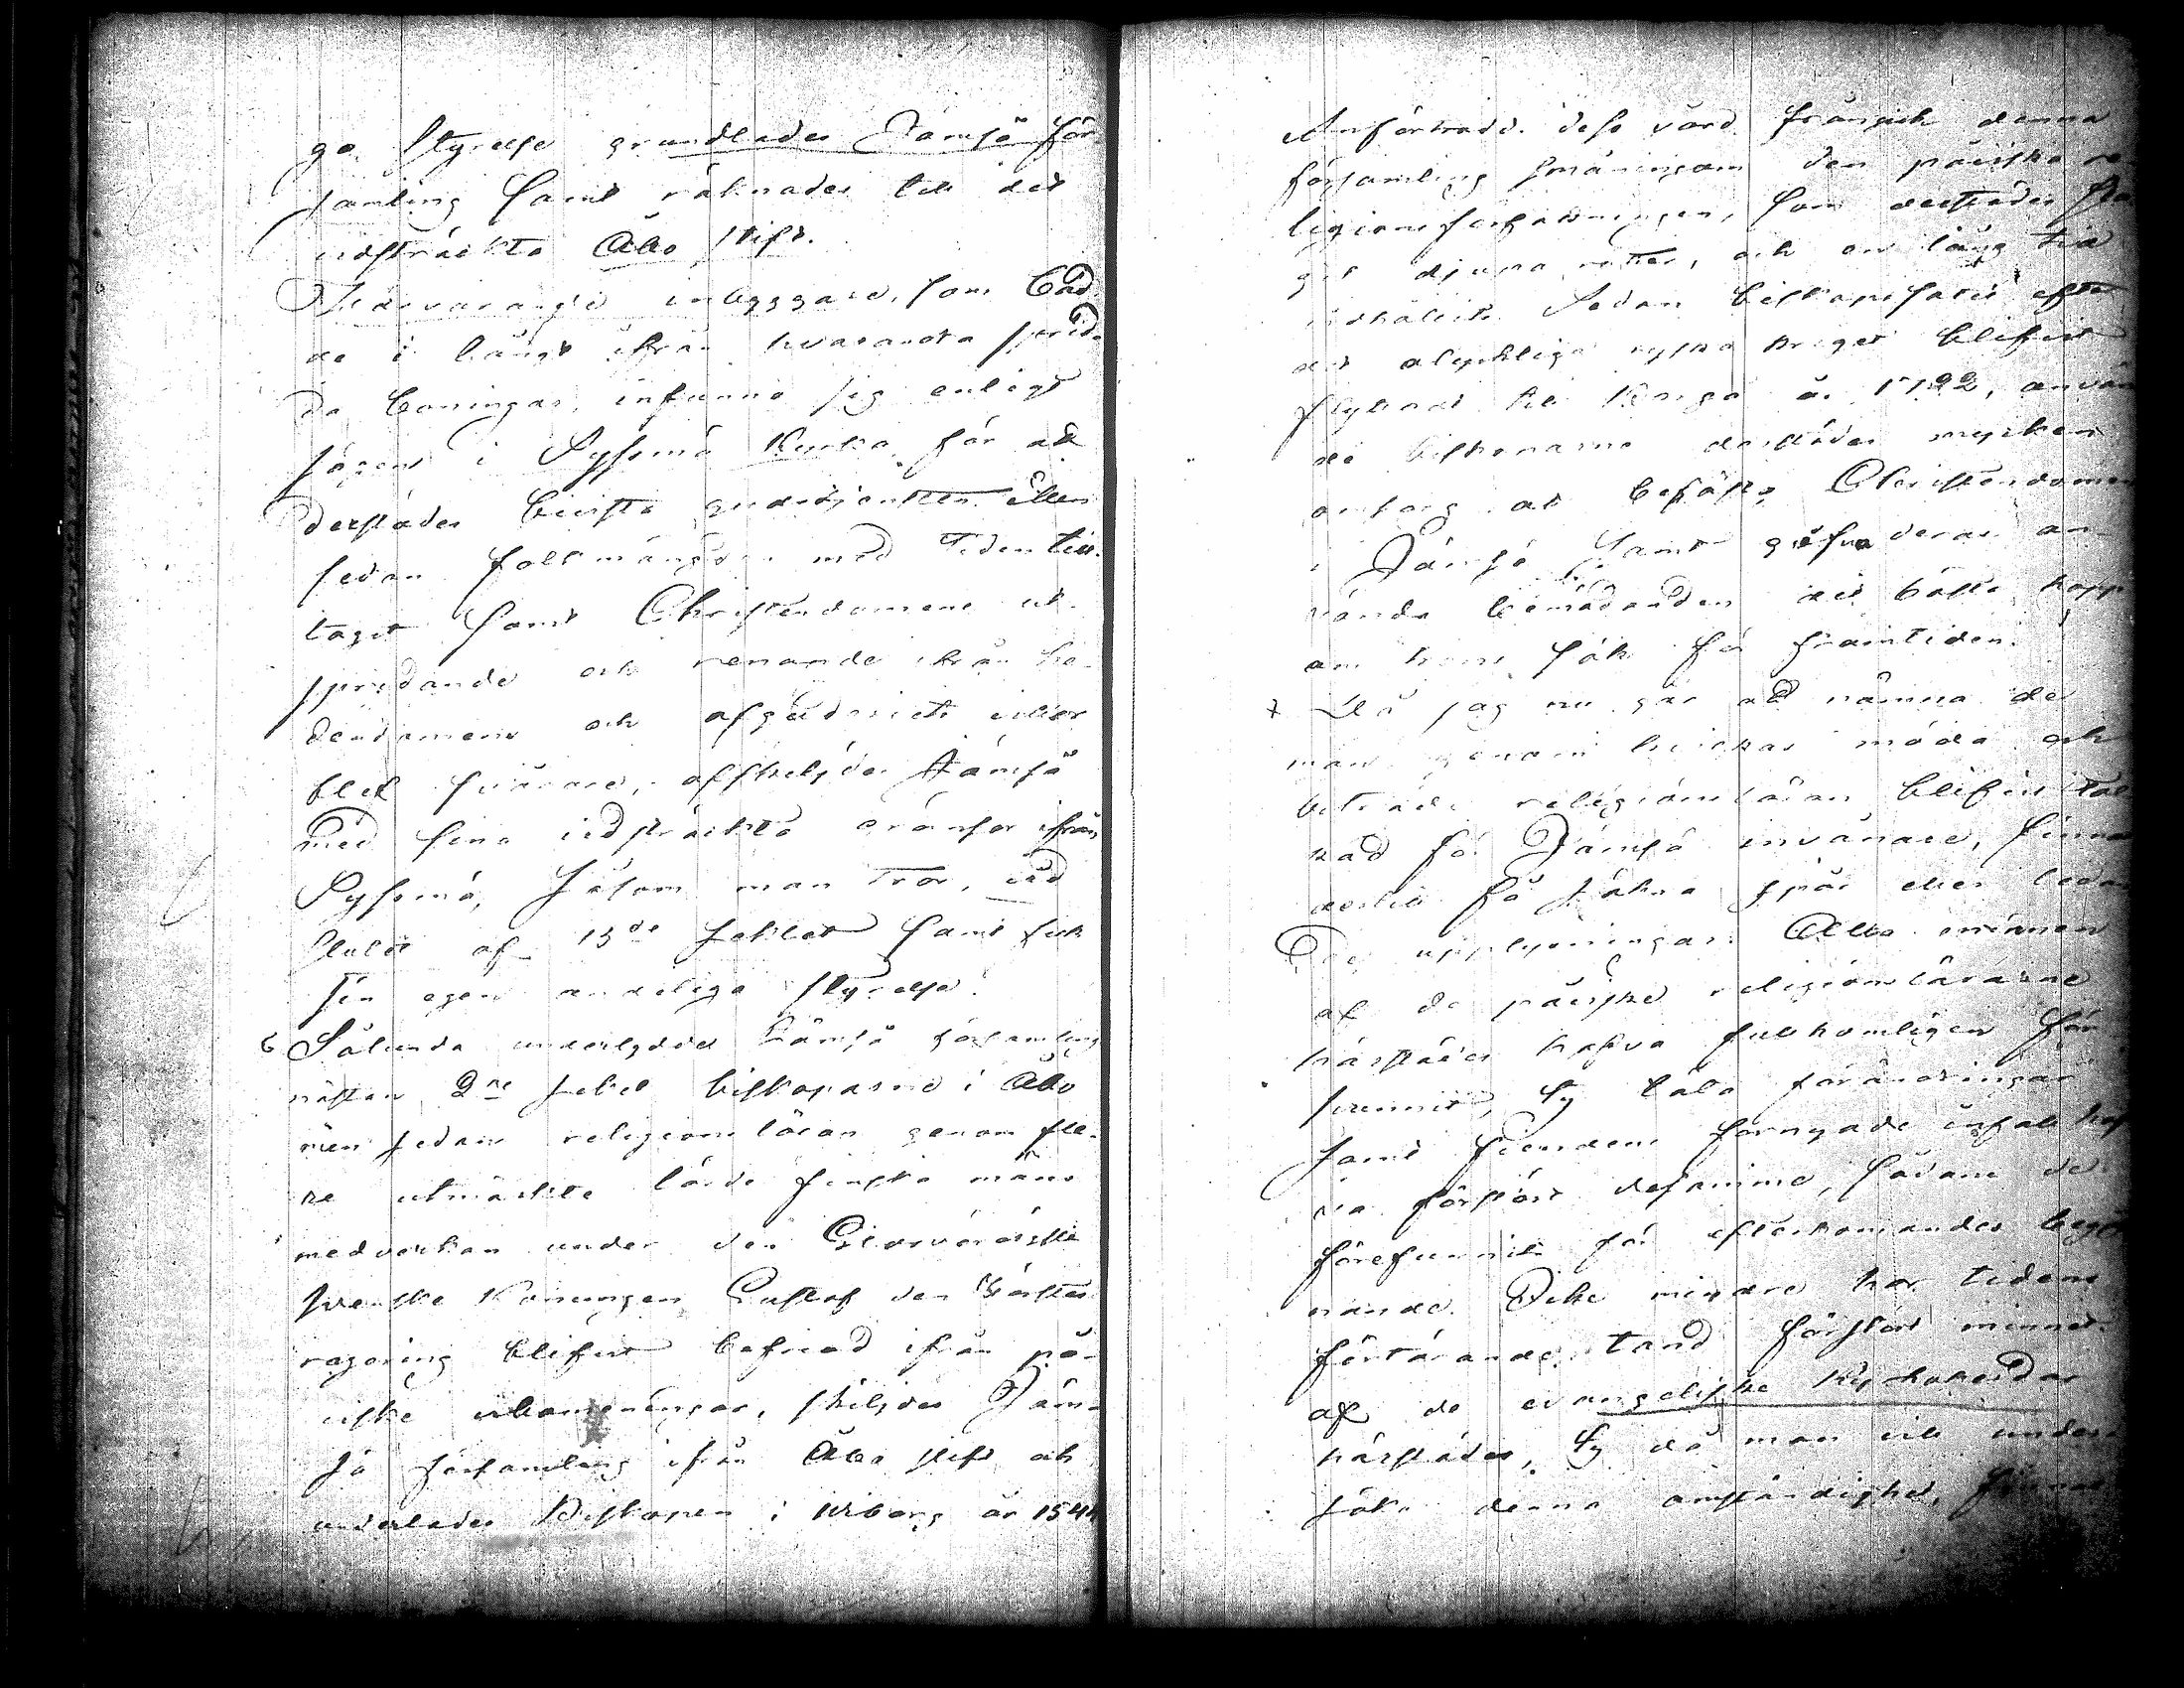 ga Styrelse grundlades Jämsä för-
samling samt räknades till det
vidsträckta Åbo stift.
Härvarande inbyggare, som bod-
de i långt ifrån hvarandra sprid-
da boningar, infunno sig enligt
sägen i Sysmä Kyrka för att
derstädes bivista gudstjensten. Men
sedan folkmängden med tiden till-
tagit samt Christendomens ut-
spridande och renande ifrån he-
dendomens och afguderiets
blef svårare, afskiljdes Jämsä
med sina vidsträckta gränsor ifrån
Sysmä, såsom man tror, vid
slutet af 15de seklet samt fick
sin egen andeliga styrelse.
6 Sålunda underlydde Jämsä församling
nästan 2ne sekel biskoparne i Åbo
men sedan religionsläran genom fle-
re utmärkte lärde finska mäns
medverkan under den Glorvördigste
Svenske Konungen Gustaf den Förstes
regering blifvit befriad ifrån på-
viske villomeningar, skiljdes Jäm-
sä församling ifrån Åbo stift och
underlades Biskopen i Wiborg år 1544
Anförtrodd dess vård frångick denna
församling småningom den påviska re-
ligionsförfattningen, som derstädes sla-
git djupa rötter, och en lång tid
vidhållit. Sedan biskopssätet efter
det olyckliga ryska kriget blifvit
flyttadt till Borgo år 1722, använ
de biskoparne derstädes mycken
omsorg att befästa Christendomen
i Jämsä samt gåfvo deras an-
vända bemödanden det bästa hopp
om hans sak för framtiden.
7 Då jag nu går att nämna de
män genom hvilkas möda och
biträde religionsläran blifvit tol-
kad för Jämsä invånare, finnas
dertill få säkra spår eller ledan
de upplysningar. Alla minnen
af de påviske religionslärarne
härstädes hafva fullkomligen för
svunnit, ty båda förändringar
samt fiendens förnyade infall haf
va förstört desamme, sådane de
förefunnits för efterkommandes begä
rande. Icke mindre har tidens
förtärande tand förstört minnet
af de evangeliske Kyrkoherdar
härstädes, ty då man vill under-
söka denna omständighet, finnas